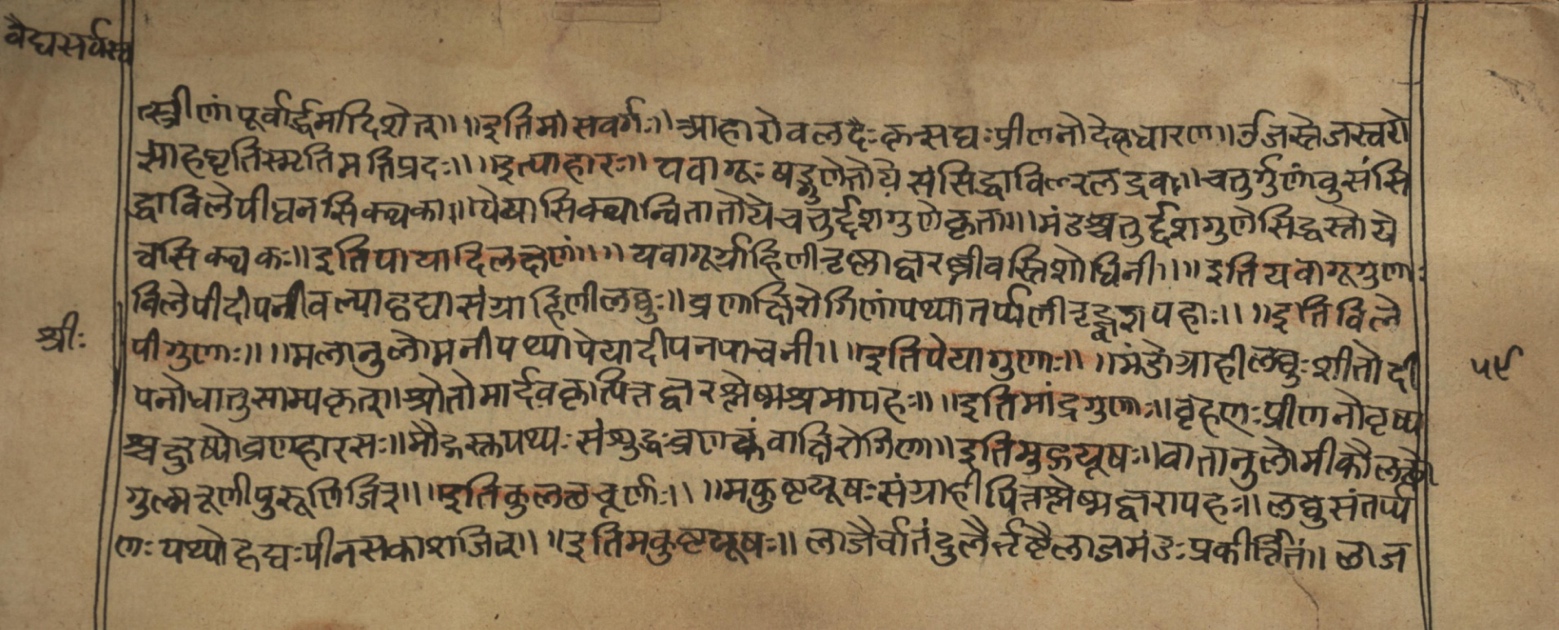 वैद्यसर्वस्व
त्स्त्रीणां पूर्वार्द्धमादिशेत्॥ ॥इति मांसवर्गः॥ आहारो वलदैः कृत्सद्यः प्रीणनो देहधारण॥ उर्जस्तेजस्वरो
साहधृतिस्मृतिमतिप्रदः॥ ॥इत्याहारः॥ यवागूः षड्गुणेतोये संसिद्धाविलरलद्रवा॥ चतुर्गुणंवुसंसि
द्धाविलेपीघनसिक्थका॥ पेयासिक्थान्वितातोये चतुर्द्दशगुणेकृता॥ मंडश्चतुर्द्दशगुणेसिद्धस्तोये
त्वसिक्थकः॥ इति पायादिलक्षणं॥ ॥ यवागूर्ग्राहिणीतृष्णाज्वरघ्नीवस्तिशोधिनी॥ ॥इति यवागूगुणाः
विलेपीदीपनीवल्याहृद्यासंग्राहिणीलघुः॥ व्रणाक्षिरोगिणांपथ्यातर्प्पणीतृड्ज्वरापहाः॥ ॥इति विले
श्रीः
पीगुणाः॥ ॥मलानुलोमनीपथ्यापेयादीपनपाचनी॥ ॥इति पेयागुणाः॥ ॥मंडोग्राहीलघुः शीतोदी
५९
पनोधातुसाम्यकृत्॥ श्रोतोमार्दवकृत्पित्तज्वरश्लेष्मश्रमापहः॥ ॥इति मांद्रगुणाः॥ वृंहणः प्रीणनोवृष्य
श्चक्षुष्योव्रणहारसः॥ मौद्गस्तपथ्यः संशुद्धव्रणकंवाक्षिरोगिणा॥ इति मुद्गयूषः॥ वातानुलोमीकौलत्थो
गुल्मतूणीपुतूणिजित्॥ ॥इति कुलछचूर्णः॥ ॥मकुष्टयूषः संग्राहीपित्तश्लेष्मज्वरापहः॥ लघुसंतर्प्प
णः पथ्योहृद्यः पीनसकाशजित्॥ ॥इति मकुष्टयूषः॥ लाजैर्वातंदुलैर्भृष्टैलाजमंडः प्रकीर्त्तितं॥ लाज